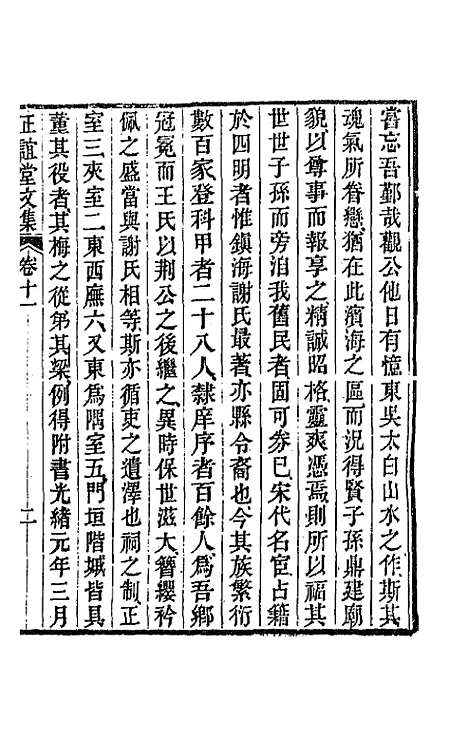 嘗忘吾鄞哉觀公他日有憶東吳太白山水之作斯其
魂氣所眷戀猶在此濱海之區而況得賢子孫鼎建廟
貌以尊事而報享之精誠昭格靈爽憑焉則所以福其
世世子孫而旁洎我舊民者固可券已宋代名宦占籍
於四明者惟鎭海謝氏最著亦縣令裔也今其族繁衍
數百家登科甲者二十八人隸庠序者百餘人爲吾鄉
冠冕而王氏以荆公之後繼之異時保世滋大簪纓衿
佩之盛當與謝氏相等斯亦循吏之遺澤也祠之制正
室三夾室二東西廡六又東爲隅室五門垣階城皆具
董其役者其梅之從弟其梁例得附書光緖元年三月
正誼堂文集 卷十一 二